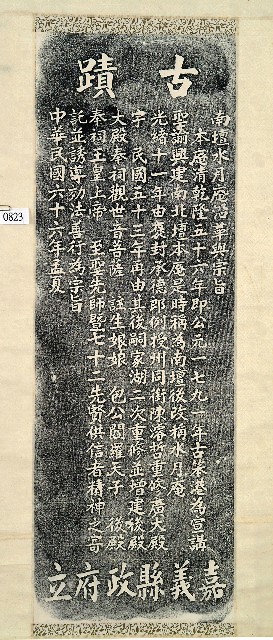 古蹟
南壇水月庵沿革與宗旨
本庵清乾隆五十六年即公元一七九一年古柴港為宣講
聖諭興建南北壇本庵是時稱為南壇後改稱水月庵
光緒十一年由褒封承德郎例授州同銜陳濬哲重修廣大殿
宇 民國五十三年再由其後嗣家湖二次重修並增建後殿
大殿奉祠觀世音菩薩 註生娘娘 包公閻羅天子 後殿
奉祠玉皇上帝 至聖先師暨七十二先賢供信者精神之寄
託並誘導勸法善行為宗旨
中華民國六十六年孟夏
嘉義縣政府立
0823